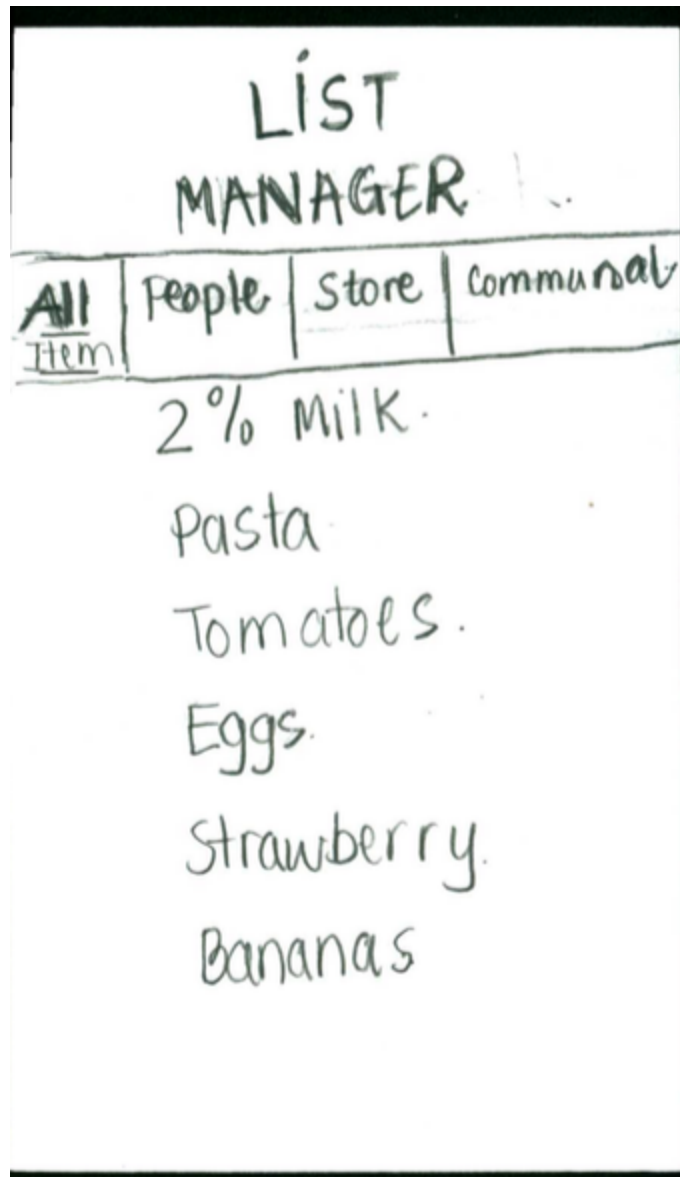 LIST
MANAGER
All Item People Store Communal
2% Milk.
Pasta
Tomatoes.
Eggs.
Strawberry.
Bananas